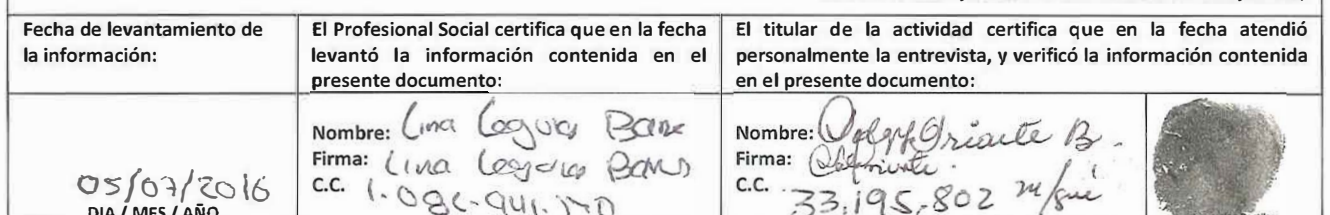 Fecha de levantamiento de
la información:
El Profesional Social certifica que en la fecha
levantó la información contenida en el
presente documento:
El titular de la actividad certifica que en la fecha atendió
personalmente la entrevista, y verificó la información contenida
en el presente documento:
05/07/2016
DIA / MES / AÑO
Nombre: Lina
Firma: Lina
C.C.
Nombre: Iriarte B.
Firma:
C.C. 33,195,802